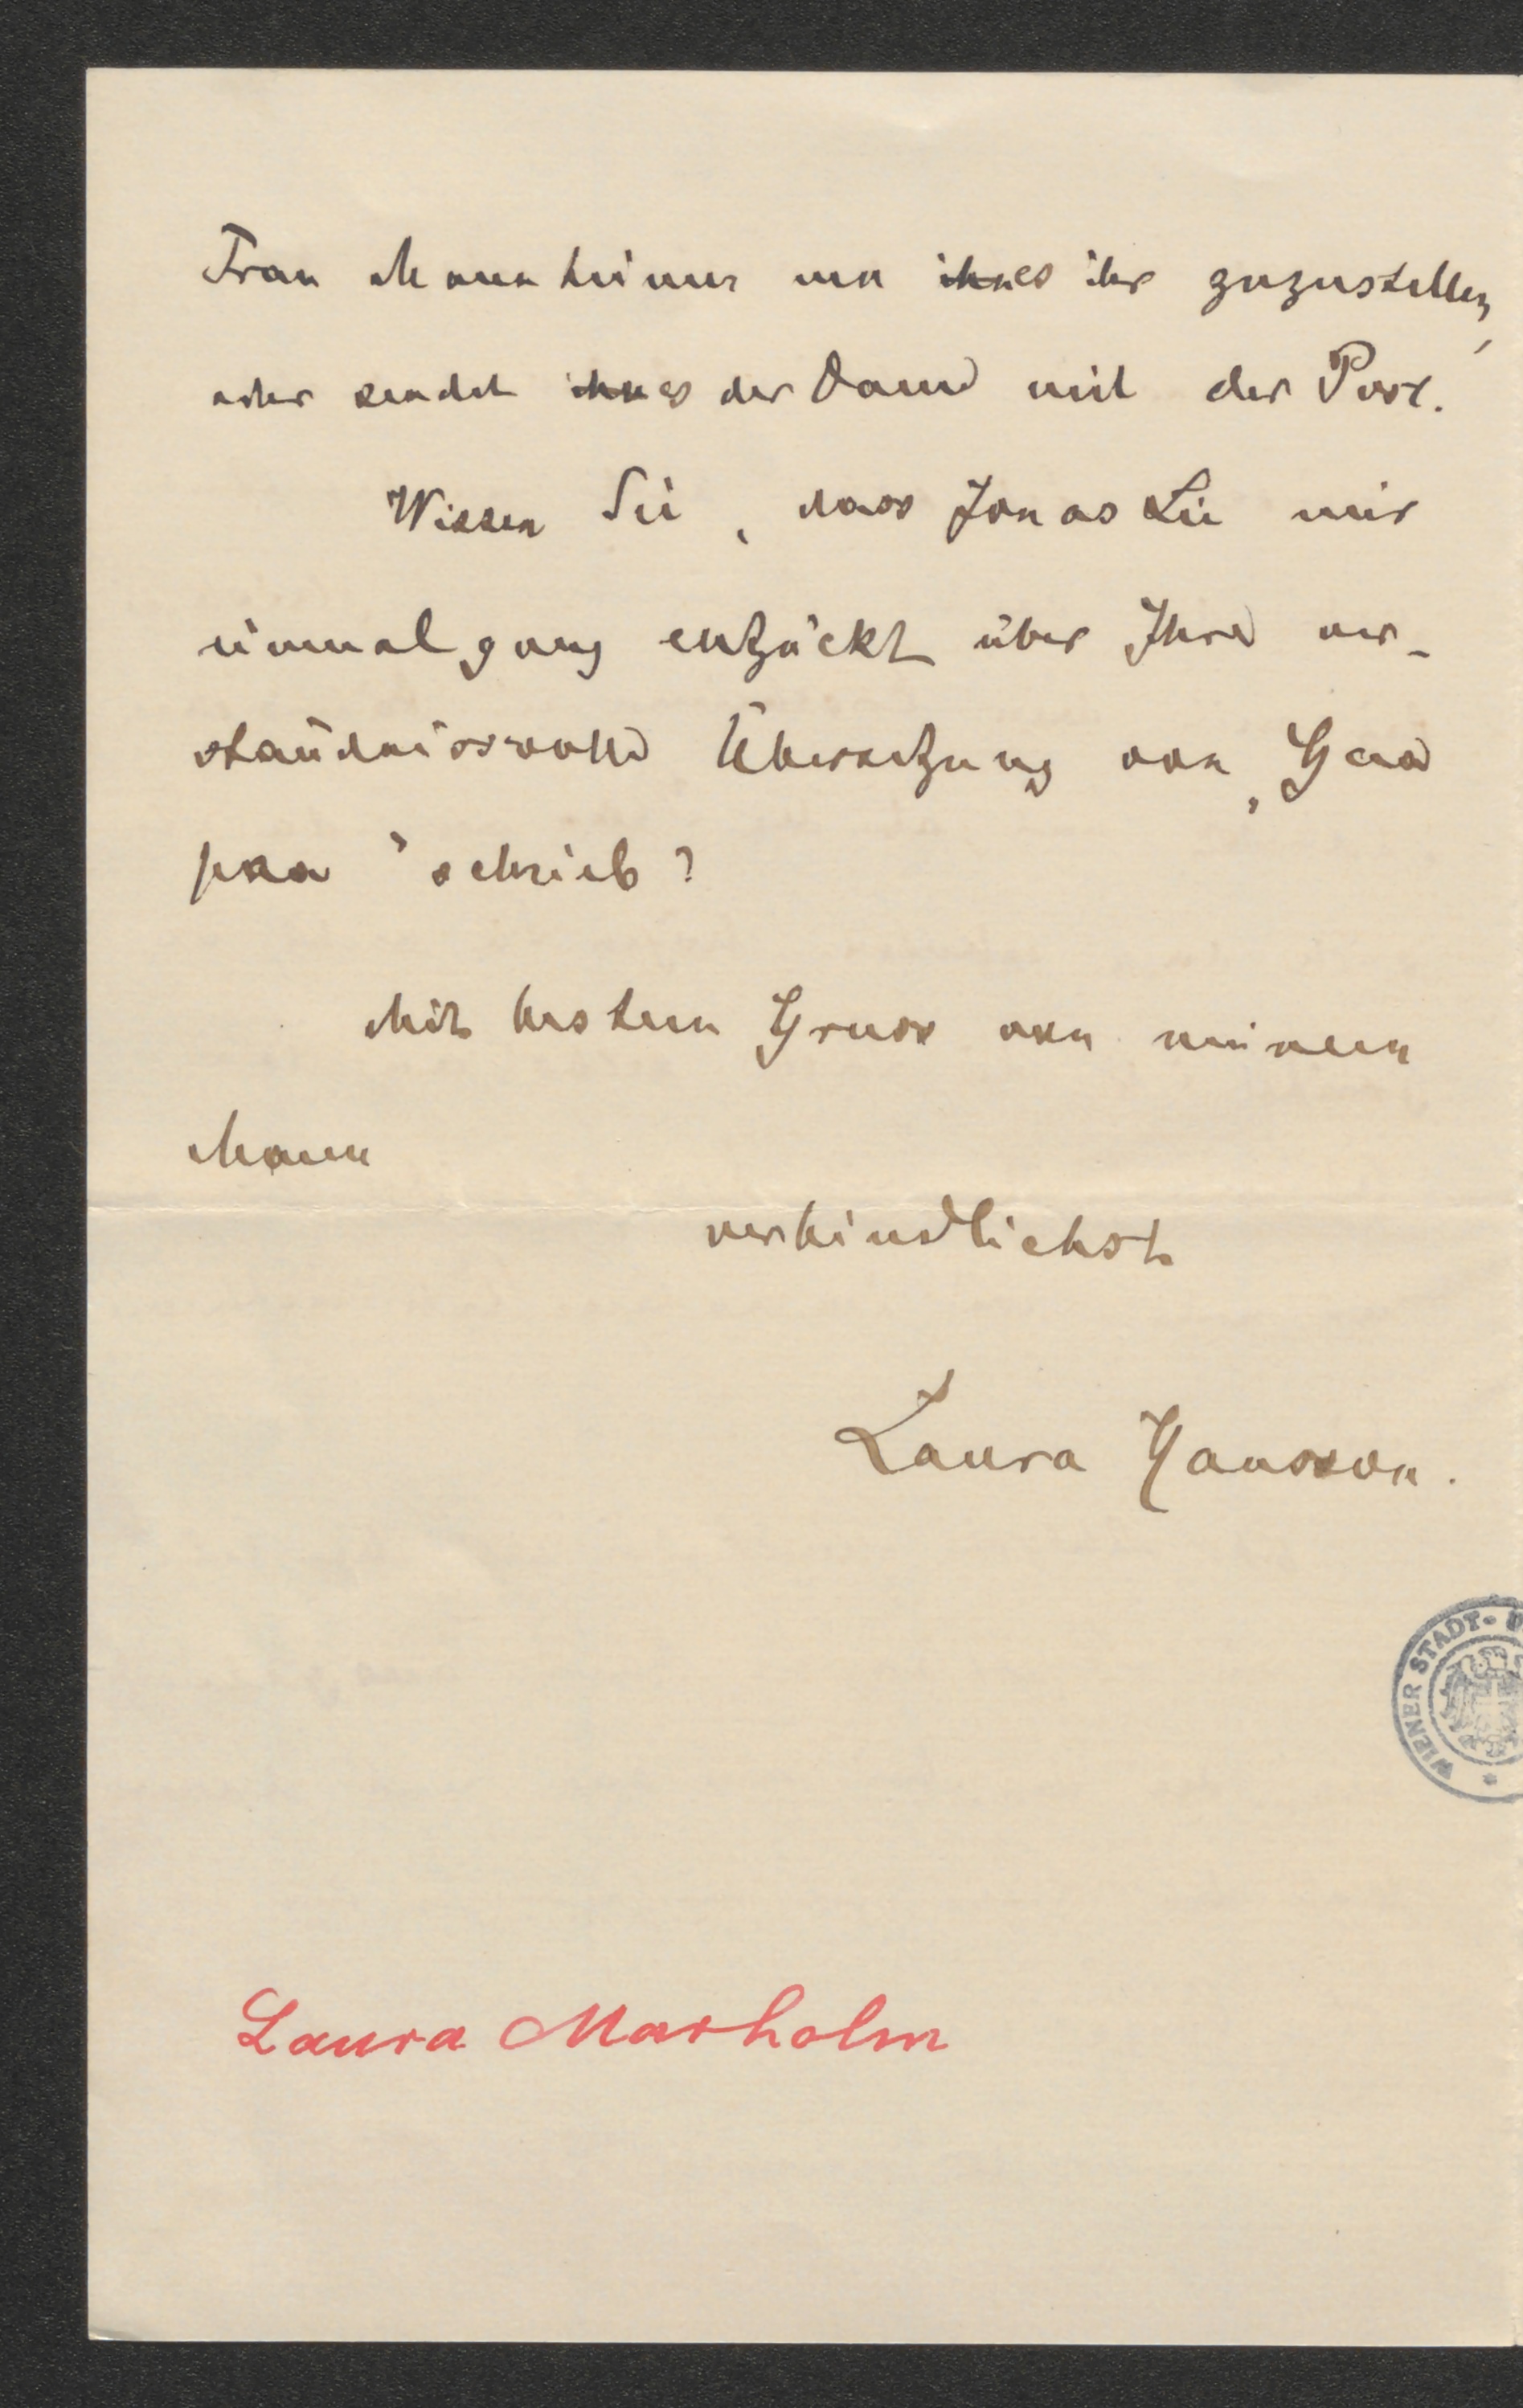 Frau Mannheimer um ihnes ihr zuzustellen,
oder sendet ihnes der Dame mit der Post.
Wissen Sie, dass Jonas Lie mir
einmal ganz entzückt über Ihre ver-
ständnissvolle Übersetzung von „Gaa
paa" schrieb?
Mit bestem Gruss von meinem
Mann
verbindlichst
Laura Hansson.
WIENER STADT-
Laura Marholm